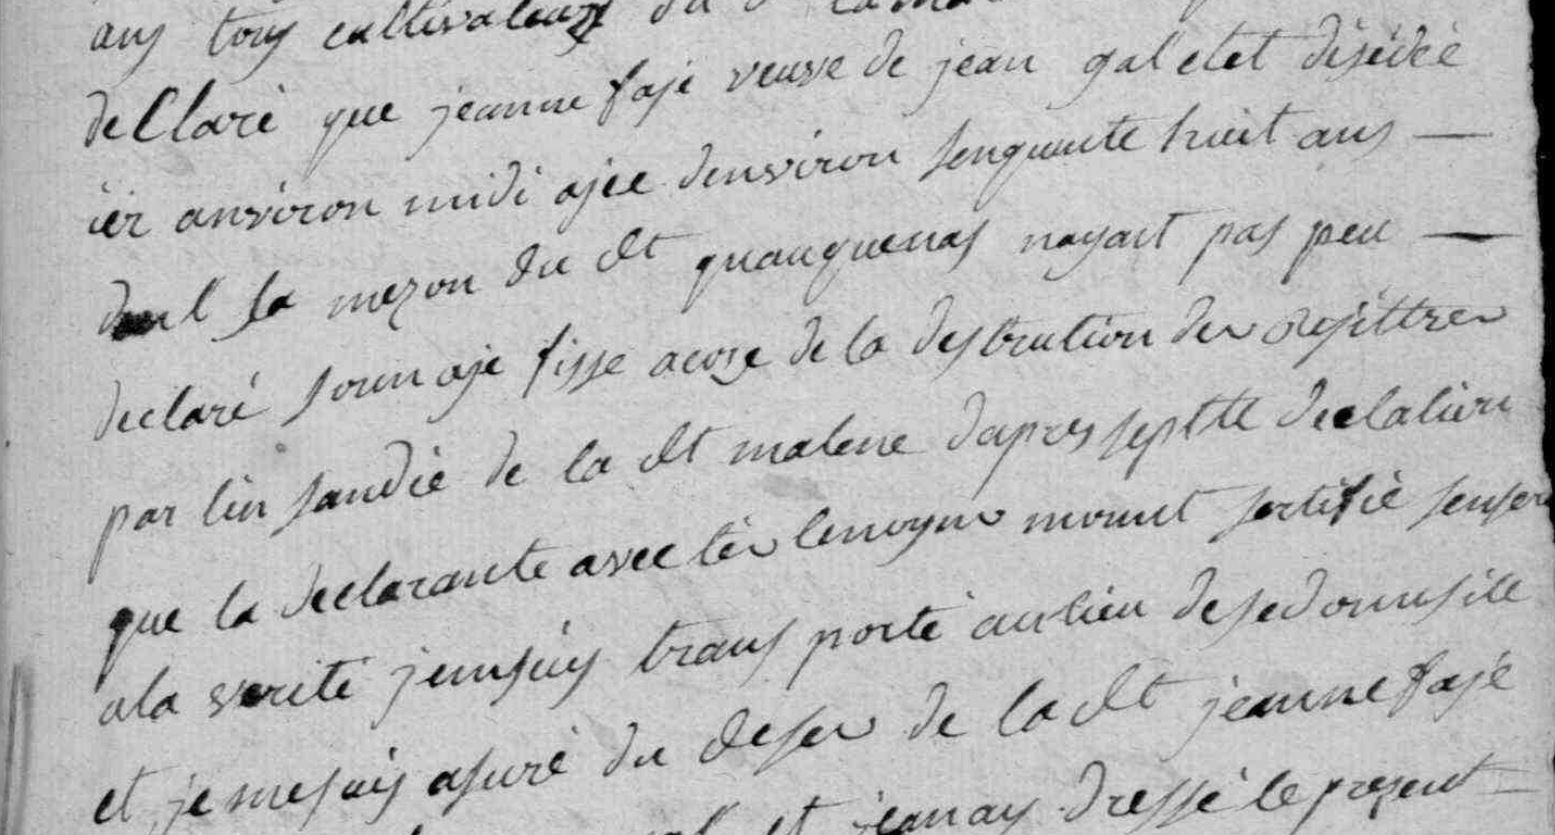 ans tous cultivateurs du d
declaré que jeanne fajé veuve de jean galetet déjédéé
ier anviron midi ajée denviron senquante huit ans —
la mezon du dt quauquenas nayant pas peu —
declaré sonn aje fisse acose de la destrution der rejittrer
par lin sandié de la dt malene dapres septte declation
que la declarante avec lér temoyns mount sertifié sensere
ala verité jemsuis trans porté au lieu de se domusile
et je mesuis asuré du deser de la dt jeanne fajé
et jeanay dressé le present —